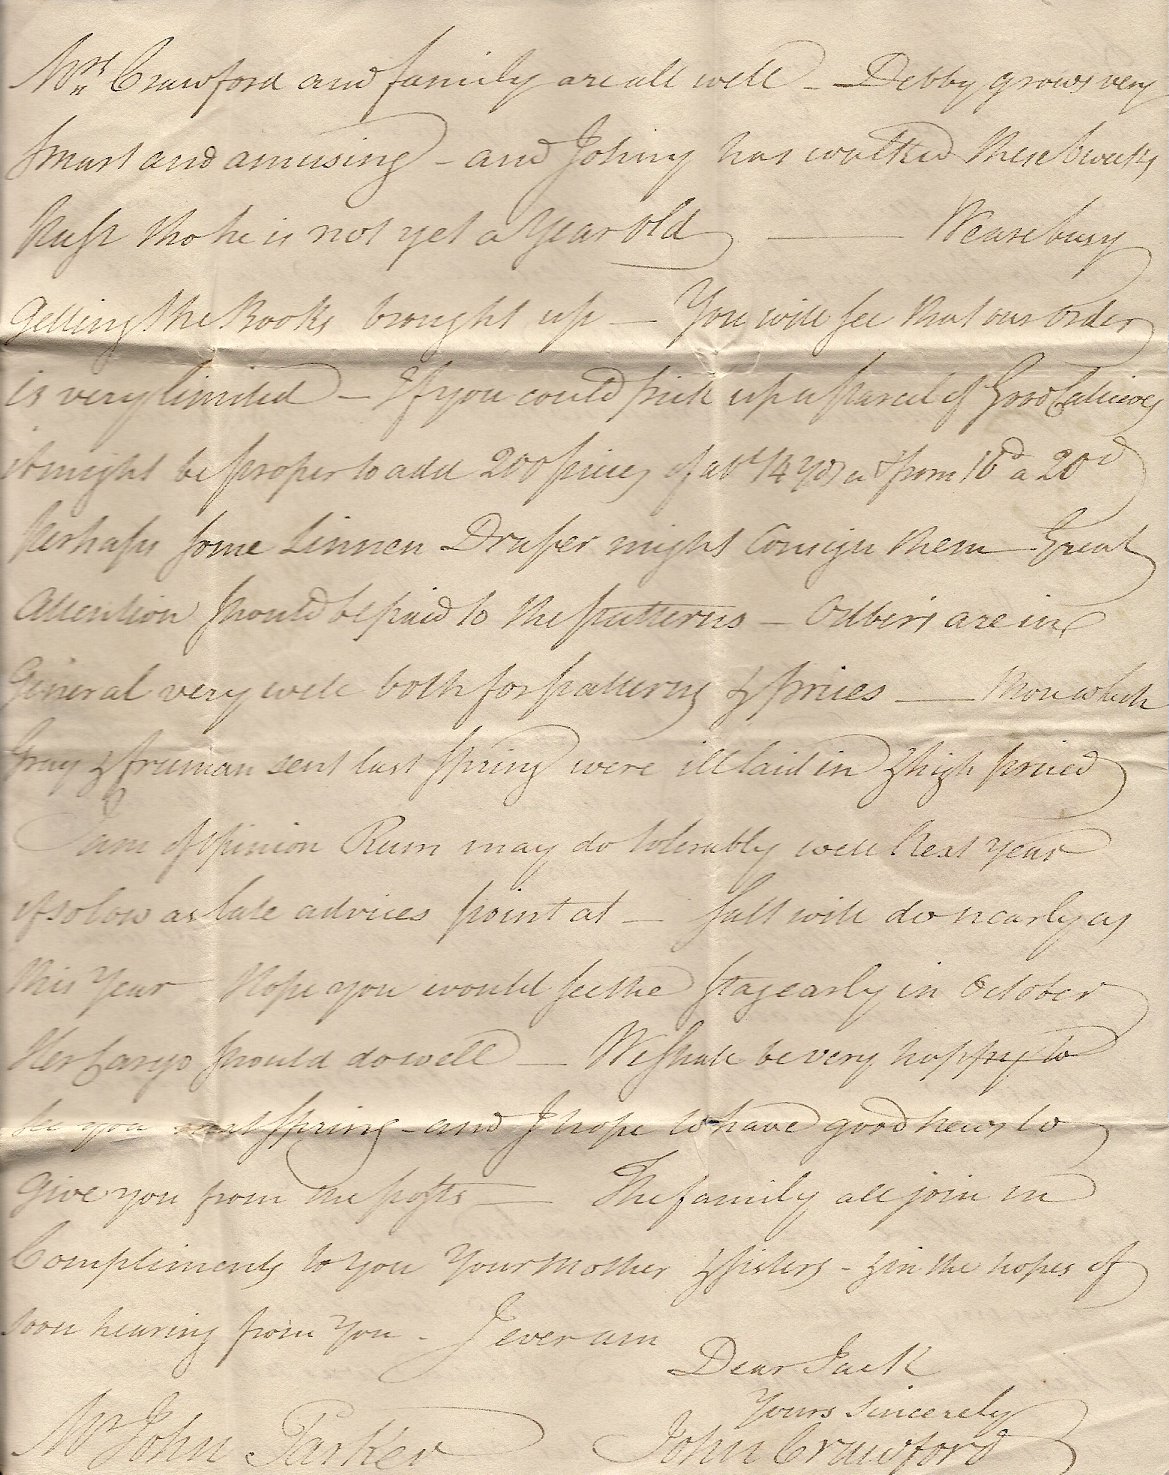 Mrs. Crawford and family are all well – Debby grows very
smart and amusing – and Johny has walked these 6 weeks
past tho he is not yet a Year old —— We are busy
getting the Books brought up – You will see that our Order
is very limited – If you could pick up a parcel of Good Calicoes
it might be proper to add 200 pieces of abt 14 Yds a from 16d a 20d
perhaps some Linnen Draper might Consign them – Great
Attention should be paid to the patterns – are in
General very well both for patterns & prices —— those which
Gray & freeman sent last spring were ill laid in & high priced
I am of Opinion Rum may do tolerably well Next Year
if so low as late advices point at – Salt will do nearly as
this Year Hope you would see the Stag early in October
Her Cargo should do well – We shall be very happy to
see you next spring – and I hope to have good news to
Give you from the posts – The family all join in
Compliments to You Your Mother & sisters – & in the hopes of
soon hearing from You – I ever am
Dear Jack
Yours Sincerely
Mr John Parker John Crawford